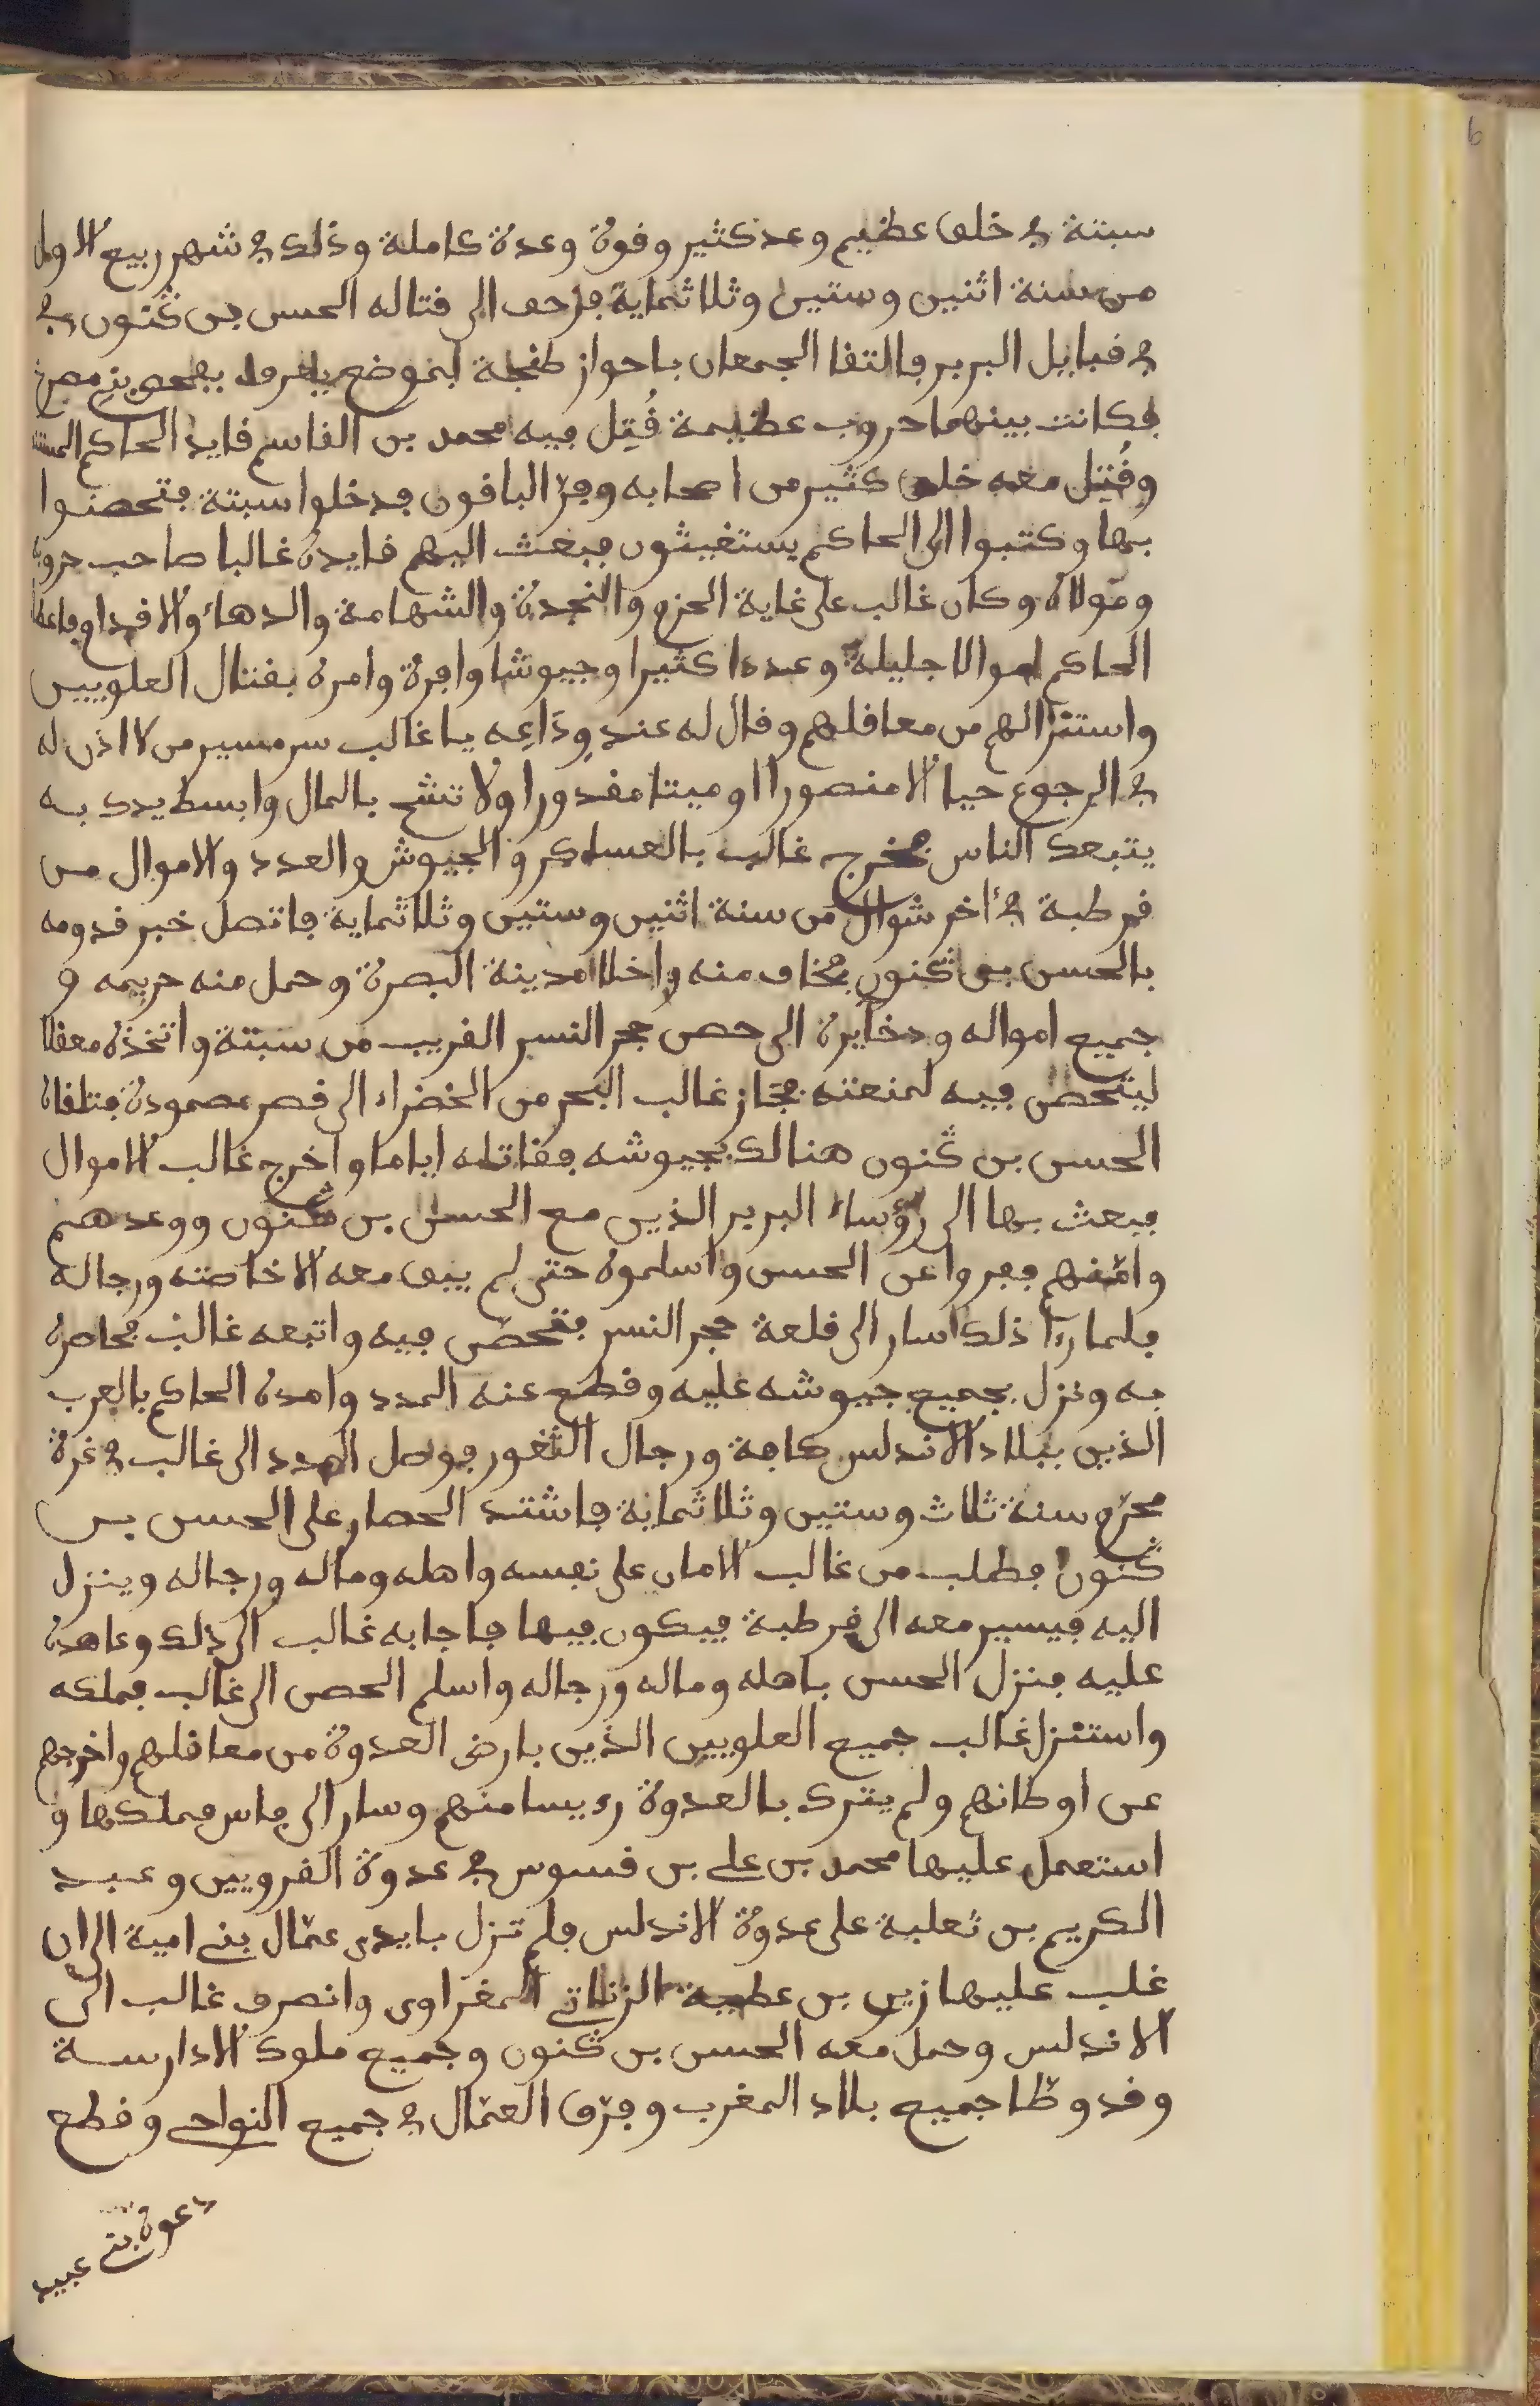 سبتة في خلق عظيم وعدد كثير وقوة وعدة كاملة وذلك في شهر ربيع الاول
من سنة اثنين وستين وثلاثماية فزحف الى قتاله الحسن بن ڭنون
في قبايل البربر فالتقا الجمعان باحواز طنجة بموضع يعرف بفحص بني مصرخ
فكانت بينهما حروب عظيمة قُتِل فيه محمد بن القاسم قايد الحاكم المستنصر
وقُتِل معه خلق كثير من اصحابه وفرّ الباقون فدخلوا سبتة فتحصنوا
بها وكتبوا الى الحاكم يستغيثون فبعث اليهم قايده غالبا صاحب حروبه
ومولاه وكان غالب على غاية الحزم والنجدة والشهامة والدهاء والاقدام فاعطاه
الحاكم اموالا جليلة وعددا كثيرا وجيوشا وافرة وامره بقتال العلويين
واستنزالهم من معاقلهم وقال له عند وِدَاعِه يا غالب سر مسير من لا اذن له
في الرجوع حيا الا منصورا او ميتا مقدورا ولا تشح بالمال وابسط يدك به
يتبعك الناس فخرج غالب بالعساكر والجيوش والعدد والاموال من
قرطبة في ءاخر شوال من سنة اثنين وستين وثلاثماية فاتصل خبر قدومه
بالحسن بن ڭنون فخاف منه واخلا مدينة البصرة وحمل منه حريمه و
جميع امواله ودخايره الى حصن حجر النسر القريب من سبتة واتخذه معقلا
ليتحصن فيه لمنعته فجاز غالب البحر من الخضراء الى قصر مصمودة فتلقاه
الحسن بن ڭنون هنالك بجيوشه فقاتله اياما واخرج غالب الاموال
فبعث بها الى رؤساء البربر الذين مع الحسن بن ڭنون ووعدهم
وامّنهم ففروا عن الحسن واسلموه حتى لم يبق معه الا خاصته ورجاله
فلما رءا ذلك سار الى قلعة حجر النسر فتحصّن فيه واتبعه غالب فحاصره
به ونزل بجميع جيوشه عليه وقطع عنه المدد وامده الحاكم بالعرب
الذين ببلاد الاندلس كافة ورجال الثغور فوصل المدد الى غالب في غرة
محرّم سنة ثلاث وستين وثلاثماية فاشتد الحصار على الحسن بن
ڭنون فطلب من غالب الامان على نفسه واهله وماله ورجاله وينزل
اليه فيسير معه الى قرطبة فيكون فيها فاجابه غالب الى ذلك وعاهده
عليه فنزل الحسن باهله وماله ورجاله واسلم الحصن الى غالب فملكه
واستنزل غالب جميع العلويين الذين بارض العدوة من معاقلهم واخرجهم
عن اوطانهم ولم يترك بالعدوة رءيسا منهم وسار الى فاس فملكها و
استعمل عليها محمد بن على بن قسوس في عدوة القرويين وعبد
الكريم بن ثعلبة على عدوة الاندلس فلم تزل بايدى عمّال بني امية الى ان
غلب عليها زيرى بن عطية الزناتي المغراوى وانصرف غالب الى
الاندلس وحمل معه الحسن بن ڭنون وجميع ملوك الادارسة
وقد وطّا جميع بلاد المغرب وفرّق العمّال في جميع النواحي وقطع
دعوة بني عبيد